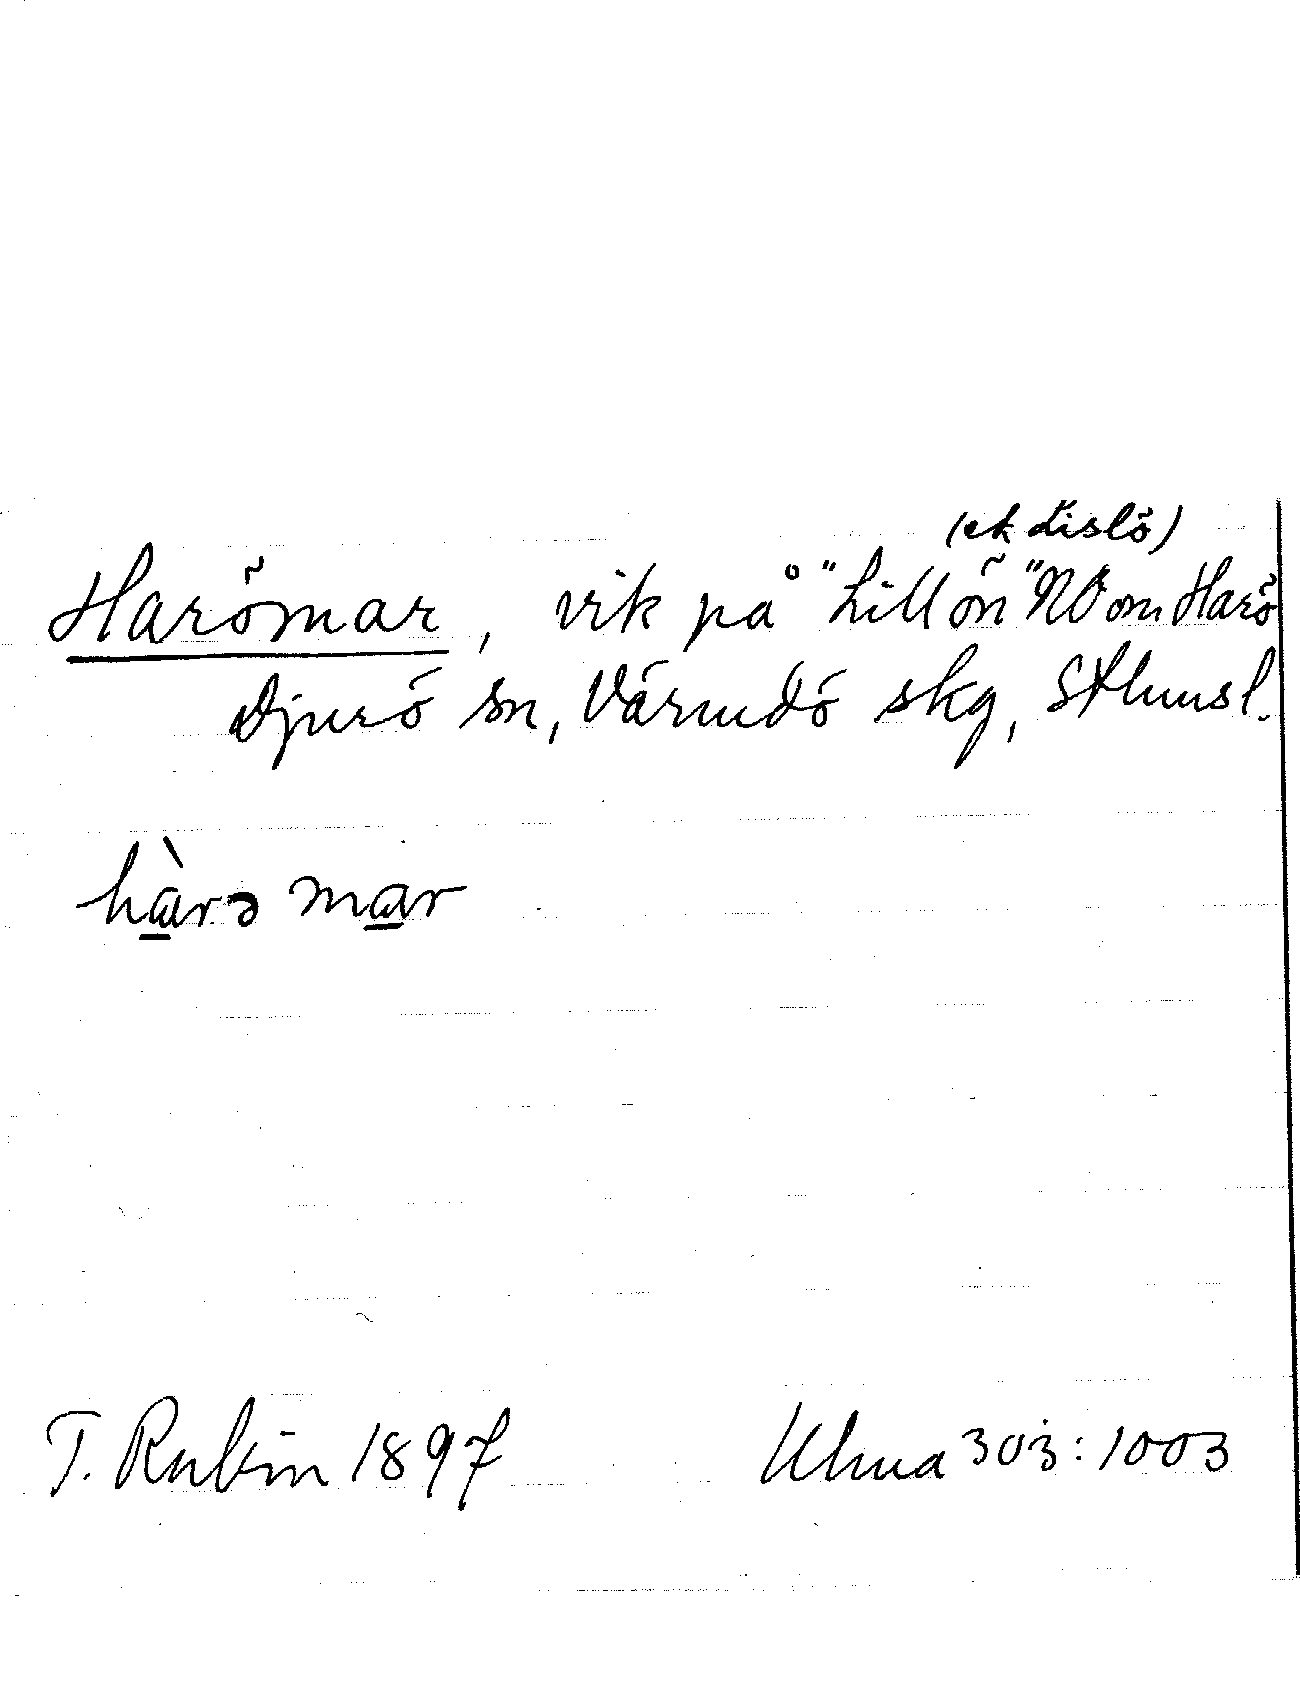 (ek Lislö)
Harömar, vik på "Lillön" NO om Harö
Djurö sn, Värmdö skg, Sthmsl.
hàrə mar
T. Rubin 1897 Ulma 303:1003